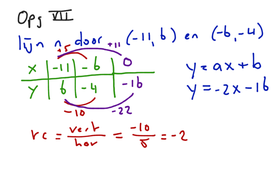 Opg VII
lijn n door (-11, 6) en (-6, -4)
+5 +11
x | -11 | -6 | 0
y | 6 | -4 | -16
-10 -22
y = ax + b
y = -2x - 16
rc = vert/hor = -10/5 = -2